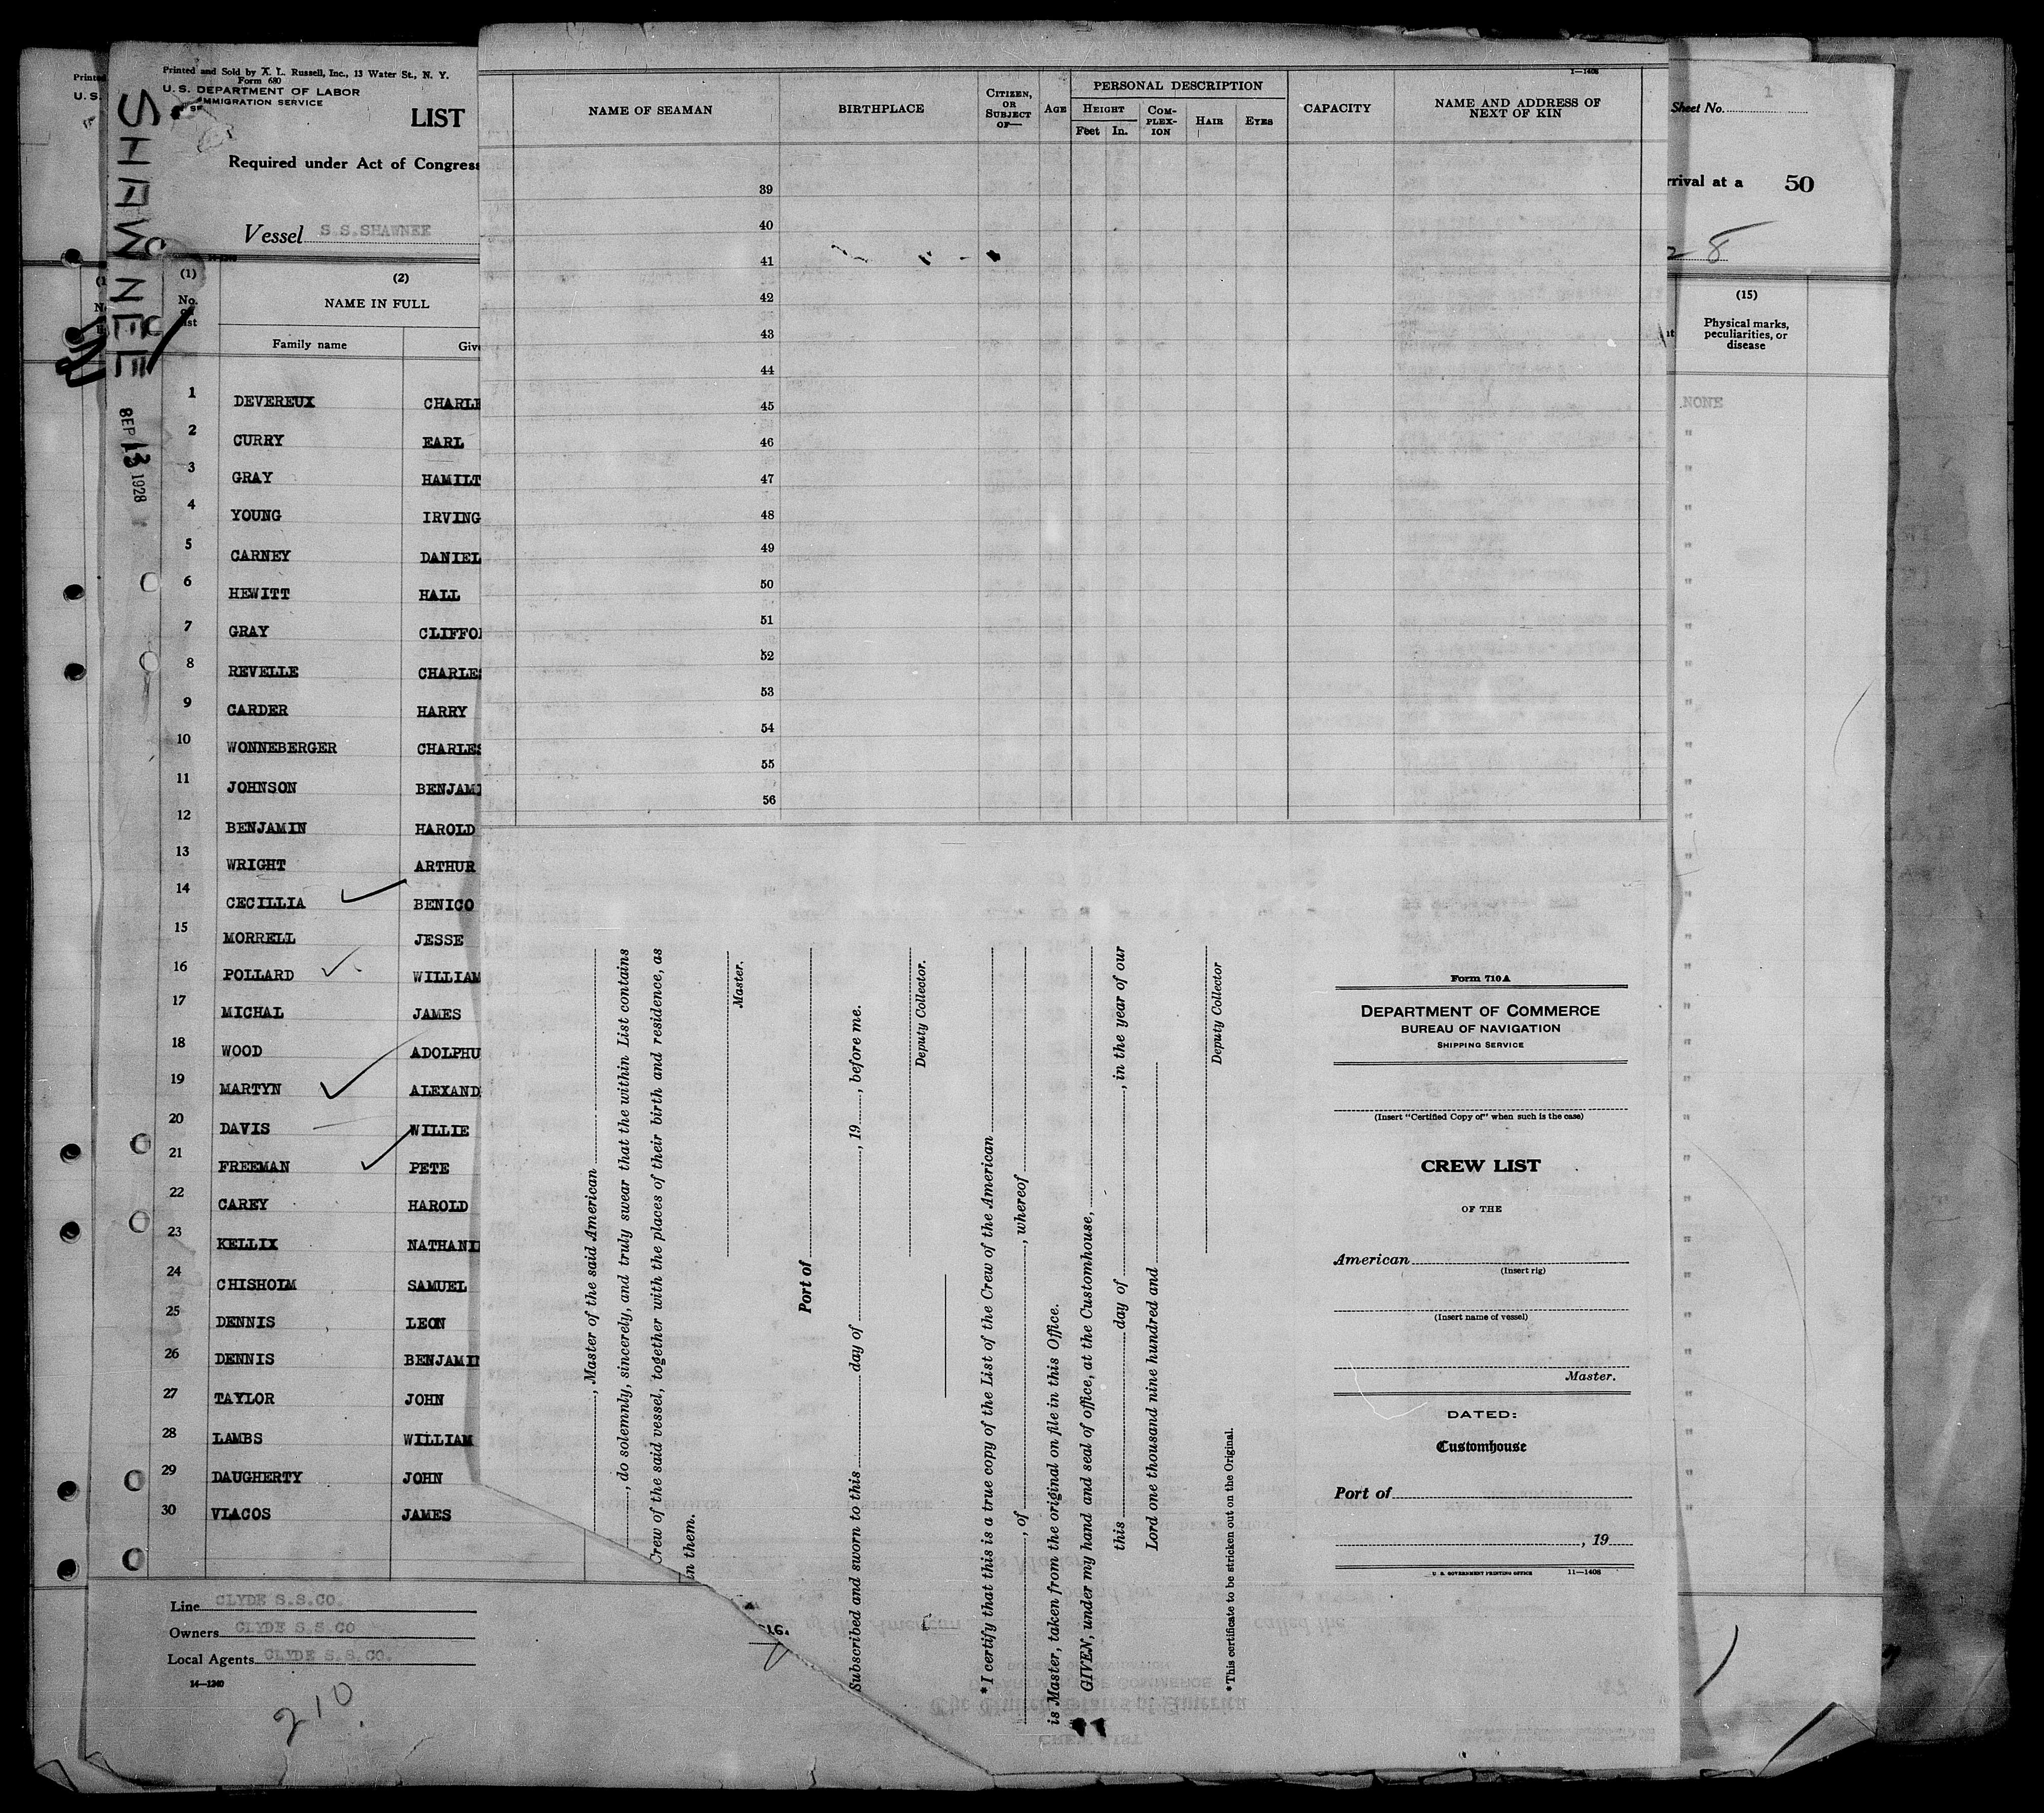 Printed
U. S.
SHAWNEE
SEP 13 1928
Printed and Sold by A. L. Russell, Inc., 13 Water St., N. Y.
Form 680
U. S. DEPARTMENT OF LABOR
IMMIGRATION SERVICE
LIST
Required under Act of Congress
Vessel S.S.SHAWNEE
14-1240
(1)
No. on list
(2)
NAME IN FULL
Family name
Give
1 DEVEREUX CHARLE
2 CURRY EARL
3 GRAY HAMILT
4 YOUNG IRVING
5 CARNEY DANIEL
6 HEWITT HALL
7 GRAY CLIFFO
8 REVELLE CHARLES
9 CARDER HARRY
10 WONNEBERGER CHARLES
11 JOHNSON BENJAMI
12 BENJAMIN HAROLD
13 WRIGHT ARTHUR
14 CECILLIA BENICO
15 MORRELL JESSE
16 POLLARD WILLIAM
17 MICHAL JAMES
18 WOOD ADOLPHU
19 MARTYN ALEXAND
20 DAVIS WILLIE
21 FREEMAN PETE
22 CAREY HAROLD
23 KELLIX NATHANI
24 CHISHOLM SAMUEL
25 DENNIS LEON
26 DENNIS BENJAMIN
27 TAYLOR JOHN
28 LAMBS WILLIAM
29 DAUGHERTY JOHN
30 VLACOS JAMES
Line CLYDE S.S.CO.
Owners CLYDE S.S.CO
Local Agents CLYDE S.S.CO.
14—1240
210
1—1408
NAME OF SEAMAN
BIRTHPLACE
CITIZEN, OR SUBJECT OF—
AGE
PERSONAL DESCRIPTION
HEIGHT
Feet
In.
COM-PLEX-ION
HAIR
EYES
CAPACITY
NAME AND ADDRESS OF NEXT OF KIN
39
40
41
42
43
44
45
46
47
48
49
50
51
52
53
54
55
56
, Master of the said American
, do solemnly, sincerely, and truly swear that the within List contains
Crew of the said vessel, together with the places of their birth and residence, as
in them.
Master.
Port of
Subscribed and sworn to this day of , 19 , before me.
Deputy Collector.
*I certify that this is a true copy of the List of the Crew of the American
, of , whereof
is Master, taken from the original on file in this Office.
GIVEN, under my hand and seal of office, at the Customhouse,
this day of , in the year of our
Lord one thousand nine hundred and
Deputy Collector
*This certificate to be stricken out on the Original.
Form 710A
DEPARTMENT OF COMMERCE
BUREAU OF NAVIGATION
SHIPPING SERVICE
(Insert "Certified Copy of" when such is the case)
CREW LIST
OF THE
American
(Insert rig)
(Insert name of vessel)
Master.
DATED:
Customhouse
Port of
, 19
U. S. GOVERNMENT PRINTING OFFICE 11—1408
Sheet No. 1
rrival at a 50
28
(15)
Physical marks, peculiarities, or disease
NONE
"
"
"
"
"
"
"
"
"
"
"
"
"
"
"
"
"
"
"
"
"
"
"
"
"
"
"
"
"